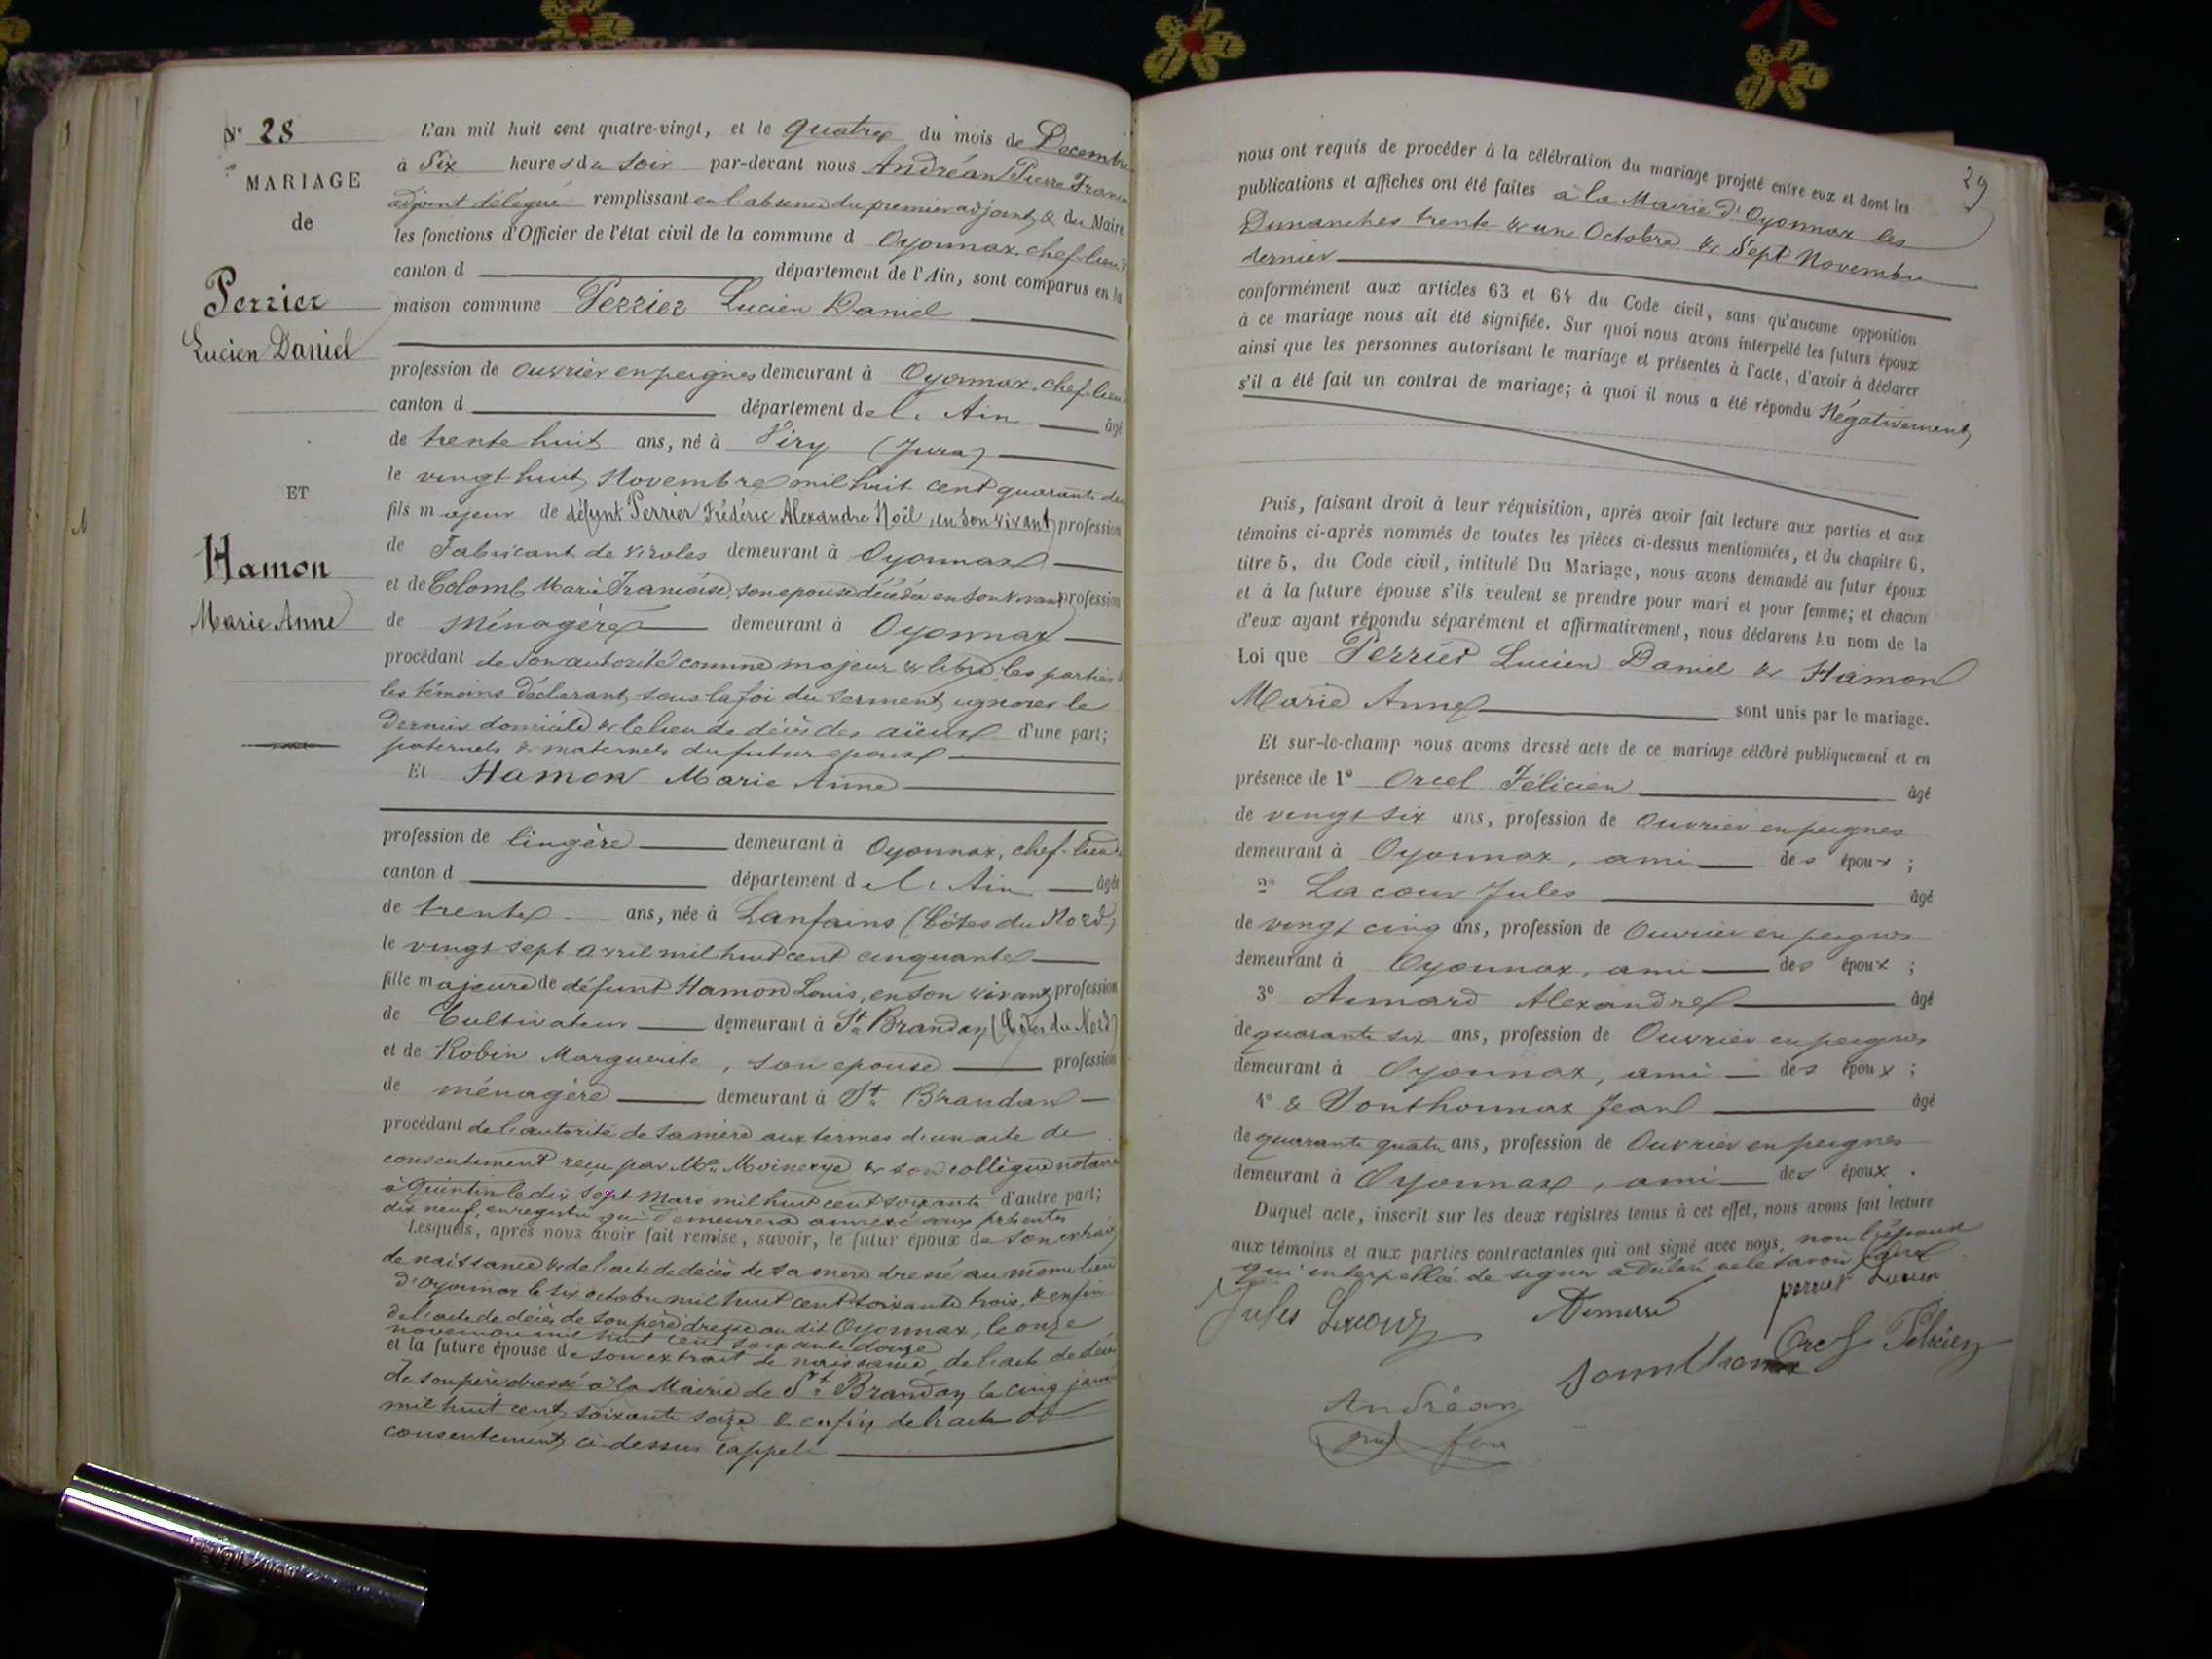 N° 28
MARIAGE
de
Perrier
Lucien Daniel
ET
Hamon
Marie Anne
L'an mil huit cent quatre-vingt, et le quatre du mois de Decembre
à Six heures du soir par-devant nous Andréan Pierre Franc
adjoint délégué remplissant en l'absence du premier adjoint & du Maire
les fonctions d'Officier de l'état civil de la commune d Oyonnax, chef-lieu
canton d département de l'Ain, sont comparus en la
maison commune Perrier Lucien Daniel
profession de ouvrier en peignes demeurant à Oyonnax, chef-lieu
canton d département de l'Ain âgé
de trente huit ans, né à Viry (Jura)
le vingt huit Novembre mil huit cent quarante deu
fils majeur de défunt Perrier Frédéric Alexandre Noël, en son vivant profession
de Fabricant de viroles demeurant à Oyonnax
et de Colomb Marie Françoise, son epouse décédée en son vivant profession
de Ménagère demeurant à Oyonnax
procédant de son autorité comme majeur & libre, les parties &
les témoins déclarant sous la foi du serment ignorer le
dernier domicile & le lieu de décès des aïeux d'une part;
paternels & maternels du futur epoux
Et Hamon Marie Anne
profession de lingère demeurant à Oyonnax, chef-lieu d
canton d département de l'Ain âgée
de trente ans, née à Lanfains (Côtes du Nord)
le vingt sept avril mil huit cent cinquante
fille majeure de défunt Hamon Louis, en son vivant profession
de Cultivateur demeurant à St Brandan (Côtes du Nord)
et de Robin Marguerite, son epouse profession
de ménagère demeurant à St Brandan
procédant de l'autorité de sa mère aux termes d'un acte de
consentement reçu par Me & son collègue notaire
à Quintin le dix sept Mars mil huit cent soixante d'autre part;
dix neuf, enregistré qui demeurera annexé aux présentes
Lesquels, après nous avoir fait remise, savoir, le futur époux de son extrait
de naissance & de l'acte de décès de sa mère dressé au même lieu
d'Oyonnax le six octobre mil huit cent soixante trois, & enfin
de l'acte de décès de son père dressé au dit Oyonnax, le onze
novembre mil huit cent soixante douze
et la future épouse de son extrait de naissance, de l'acte de décè
de son père dressé à la Mairie de St Brandan le cinq janv
mil huit cent soixante seize & enfin de l'acte de
consentement ci-dessus rappelé
29
nous ont requis de procéder à la célébration du mariage projeté entre eux et dont les
publications et affiches ont été faites à la Mairie d'Oyonnax les
Dimanches trente & un Octobre & Sept Novembre
dernier
conformément aux articles 63 et 64 du Code civil, sans qu'aucune opposition
à ce mariage nous ait été signifiée. Sur quoi nous avons interpellé les futurs époux
ainsi que les personnes autorisant le mariage et présentes à l'acte, d'avoir à déclarer
s'il a été fait un contrat de mariage; à quoi il nous a été répondu Négativement
Puis, faisant droit à leur réquisition, après avoir fait lecture aux parties et aux
témoins ci-après nommés de toutes les pièces ci-dessus mentionnées, et du chapitre 6,
titre 5, du Code civil, intitulé Du Mariage, nous avons demandé au futur époux
et à la future épouse s'ils veulent se prendre pour mari et pour femme; et chacun
d'eux ayant répondu séparément et affirmativement, nous déclarons Au nom de la
Loi que Perrier Lucien Daniel & Hamon
Marie Anne sont unis par le mariage.
Et sur-le-champ nous avons dressé acte de ce mariage célébré publiquement et en
présence de 1° Orcel Félicien âgé
de vingt six ans, profession de Ouvrier en peignes
demeurant à Oyonnax, ami des époux;
2° Lacour Jules âgé
de vingt cinq ans, profession de Ouvrier en peignes
demeurant à Oyonnax, ami des époux;
3° Alexandre âgé
de quarante six ans, profession de Ouvrier en peignes
demeurant à Oyonnax, ami des époux;
4° & Sonthonnax Jean âgé
de quarante quatre ans, profession de Ouvrier en peignes
demeurant à Oyonnax, ami des époux.
Duquel acte, inscrit sur les deux registres tenus à cet effet, nous avons fait lecture
aux témoins et aux parties contractantes qui ont signé avec nous, non l'épouse
qui interpellée de signer a déclaré ne le savoir
Jules
perrier Lucien
Orcel Félicien
Andréan